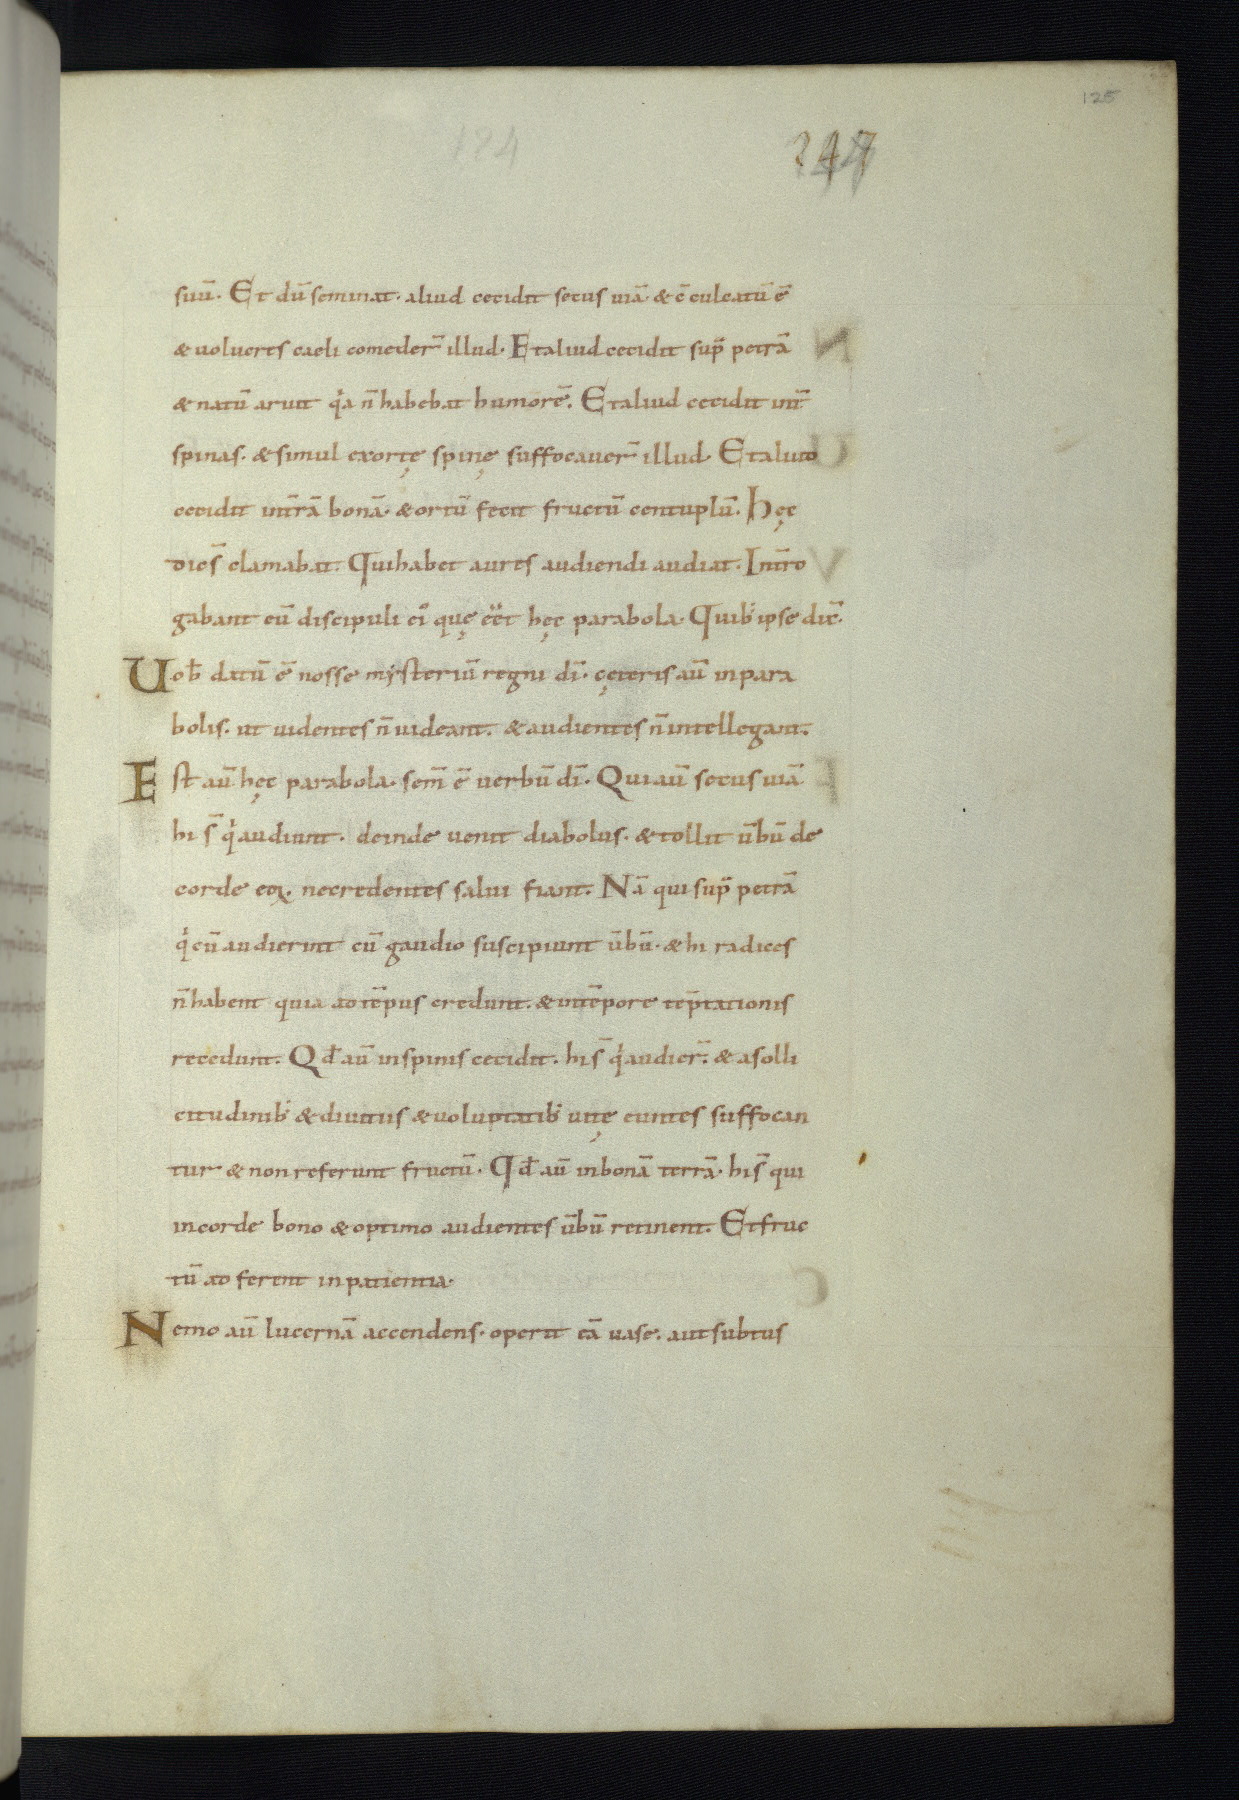 125
247
suū. Et dū seminat. aliud cecidit secus uiā. & c̄culcatū ē
& uolucres caeli comeder̄ illud. Et aliud cecidit sup̄ petrā
& natū aruit qͥa n̄ habebat humorē. Et aliud cecidit int̄
spinas. & simul exortę spinę suffocauer̄ illud. Et aliud
cecidit int̄rā bonā. & ortū fecit fructū centuplū. Hęc
dicēs clamabat. Qui habet aures audiendi audiat. Int̄ro
gabant eū discipuli ei᾽ quę eēt hęc parabola. Quib; ipse dix̄.
Uob̄ datū ē nosse mẏsteriū regni dī. cęteris aū in para
bolis. ut uidentes n̄ uideant. & audientes n̄ intellegant.
Est aū hęc parabola. sem̄ ē uerbū dī. Qui aū secus uiā
hi s̄ qͥ audiunt. deinde uenit diabolus. & tollit ūbū de
corde eoꝝ. ne credentes salui fiant. Nā qui sup̄ petrā
qͥ cū audierint cū gaudio suscipiunt ūbū. & hi radices
n̄ habent quia ad tēpus credunt. & in tēpore tēptationis
recedunt. Qd̄ aū in spinis cecidit. hi s̄ qͥ audier̄. & a solli
citudinib; & diuitiis & uoluptatib; uitę euntes suffocan
tur & non referunt fructū. Qd̄ aū in bonā terrā. hi s̄ qui
in corde bono & optimo audientes ūbū retinent. Et fruc
tū adferent in patientia.
Nemo aū lucernā accendens. operit eā uase. aut subtus